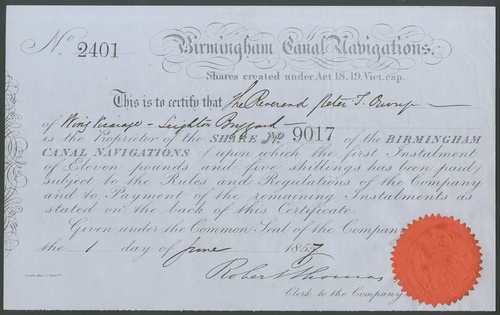 No 2401
Birmingham Canal Navigations.
Shares created under Act 18.19. Vict. cap.
This is to certify that The Reverend Peter T. Ouvry
of Wing Vicarage - Leighton Buzzard
is the Proprietor of the SHARE No 9017 of the BIRMINGHAM
CANAL NAVIGATIONS (upon which the first Instalment
of Eleven pounds and five shillings has been paid)
subject to the Rules and Regulations of the Company
and to Payment of the remaining Instalments as
stated on the back of this Certificate.
Given under the Common Seal of the Company
the 1 day of June 1857
Robert Thomas
Clerk to the Company